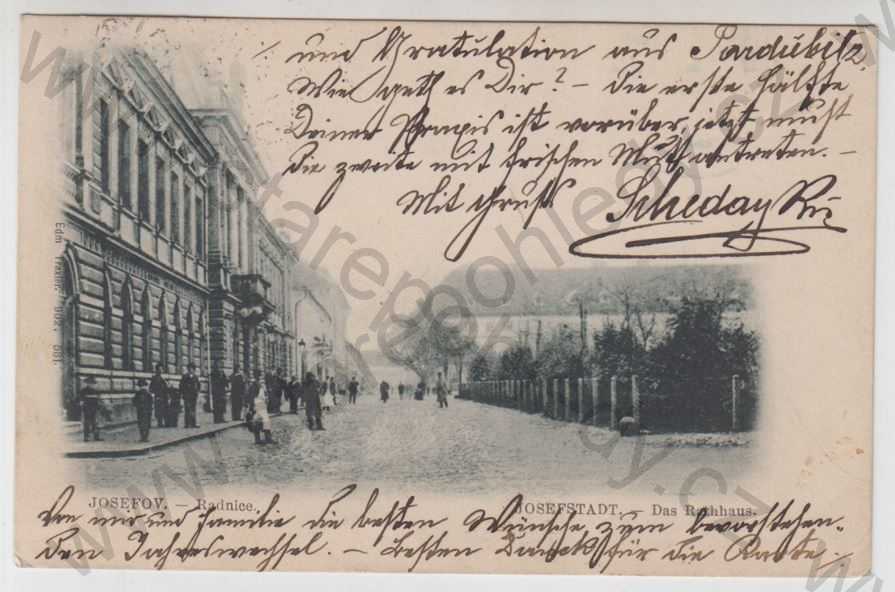 und Gratulation aus Pardubitz
Wie geht es Dir? – die erste Hälfte
Deiner Praxis ist vorüber, jetzt muſst
die zweite mit frischen Muth antreten. –
Mit Gruſs
Edm. Traznic 1902. 081.
JOSEFOV. — Radnice.
JOSEFSTADT. — Das Rathhaus.
Von mir und Familie die besten Wünsche zum bevorstehen-
den Jahreswechsel. – Besten Dank für die Karte.
www.starepohledy.cz